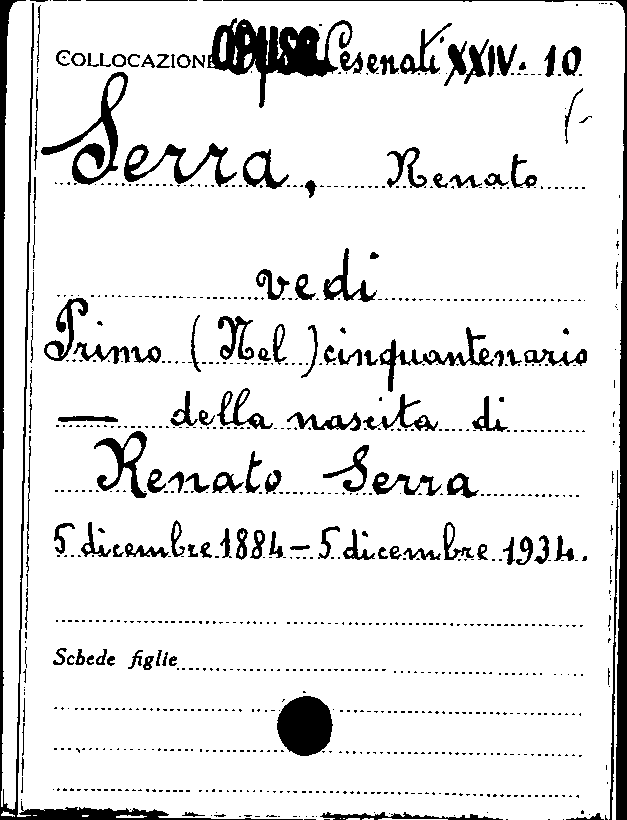 COLLOCAZIONE Opusc. Cesenati XXIV. 10
Serra, Renato
vedi
Primo (Nel) cinquantenario
— della nascita di
Renato Serra
5 dicembre 1884 – 5 dicembre 1934.
Schede figlie